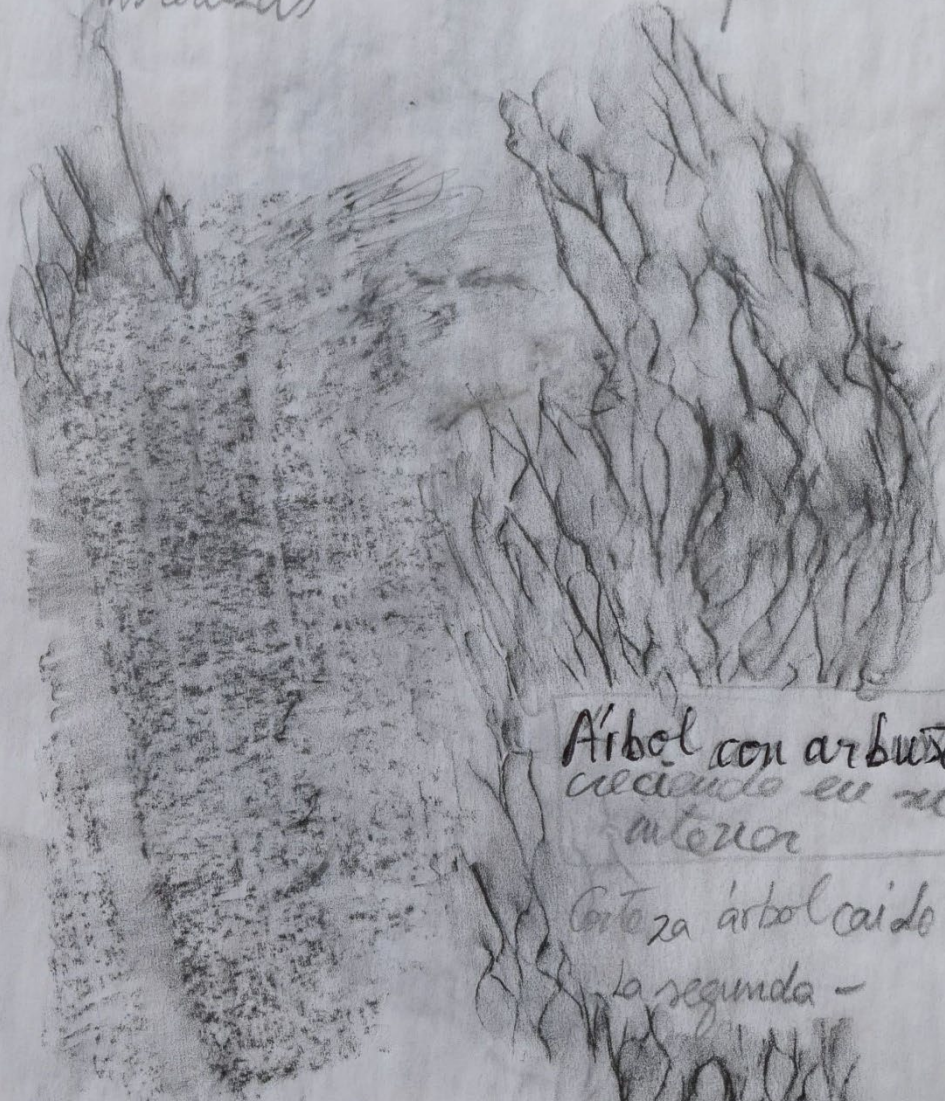 Árbol con arbus
creciendo en su
interior
Corteza árbol caido
La segunda -